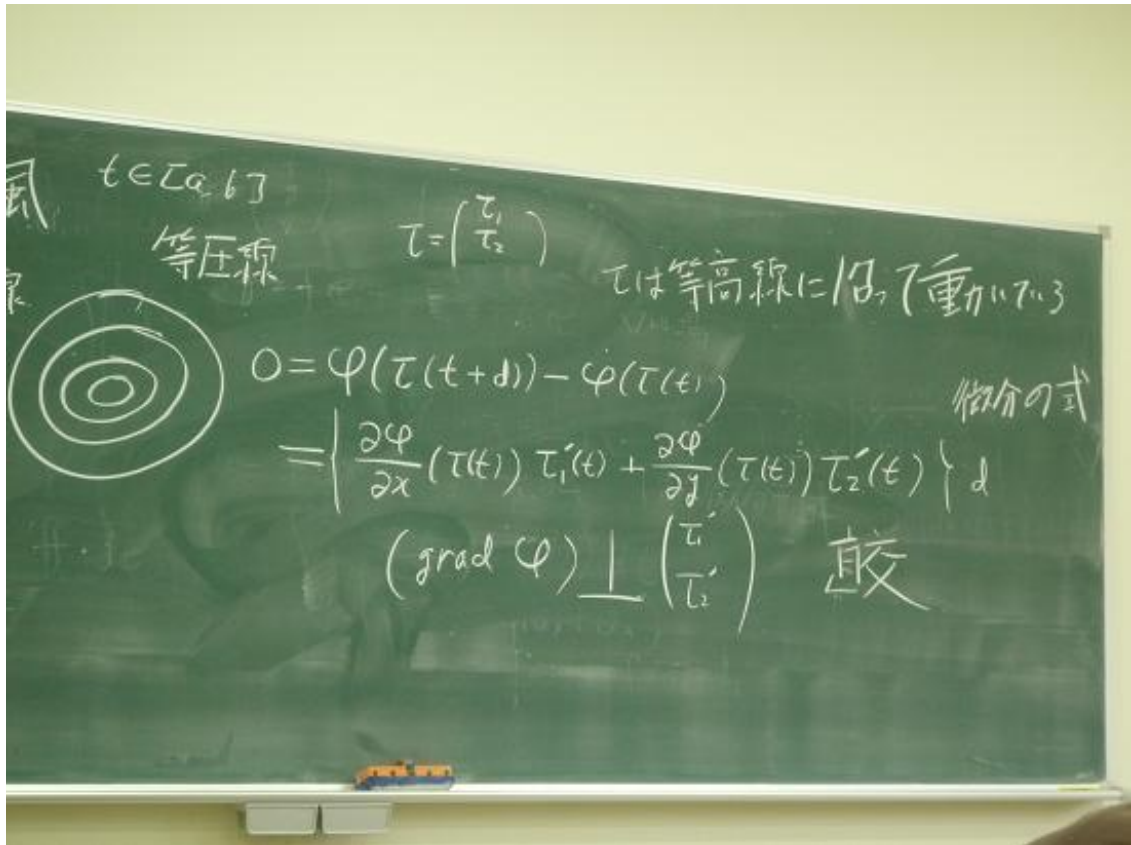 風 t∈[a, b]
等圧線
τ=(τ₁ τ₂)
τは等高線に沿って動いている
0=φ(τ(t+d))-φ(τ(t))
微分の式
={∂φ/∂x(τ(t))τ₁′(t)+∂φ/∂y(τ(t))τ₂′(t)}d
(grad φ)⊥(τ₁′ τ₂′) 直交